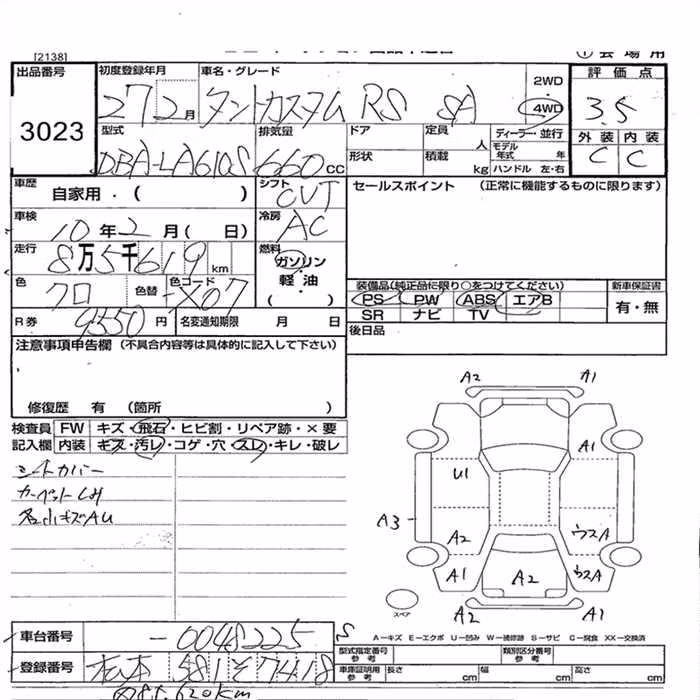 [2138]
出品番号 初度登録年月 車名・グレード 2WD 評価点
3023 27 2月 タントカスタム RS SA 4WD 3.5
型式 排気量 ドア 定員 人 ディーラー・並行 外装 内装
DBA-LA610S 660cc 形状 積載 kg モデル年式 年 ハンドル 左・右 C C
車歴 自家用・( ) シフト CVT セールスポイント (正常に機能するものに限ります)
車検 10年2月( 日) 冷房 AC
走行 8万5千619km 燃料 ガソリン 軽油 ( )
色 クロ 色替 色コード X07 装備品(純正品に限り○をつけてください) 新車保証書
PS PW ABS エアB 有・無
R券 9550円 名変通知期限 月 日 SR ナビ TV
注意事項申告欄 (不具合内容等は具体的に記入して下さい) 後日品
修復歴 有 (箇所 )
検査員 FW キズ・飛石・ヒビ割・リペア跡・×要
記入欄 内装 キズ・汚レ・コゲ・穴・スレ・キレ・破レ
シートカバー
カーペットシミ
各小キズAU
A2 A1
A1
U1
A3
A2 ウスA
A1 A2 ウスA
スペア
A2 A1
A−キズ E−エクボ U−凹み W−補修跡 S−サビ C−腐食 XX−交換済
車台番号 -0048225
型式指定番号 参考 類別区分番号 参考
登録番号 松本 581 そ 7418 車庫証明用 参考 長さ cm 幅 cm 高さ cm
085.620km